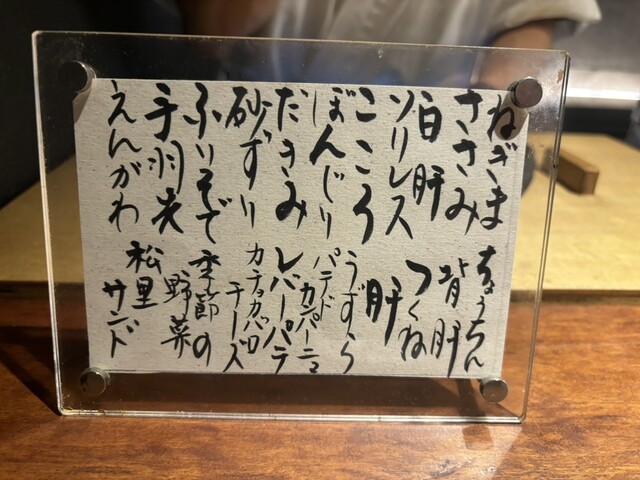 ねぎま
ささみ
白肝
ソリレス
こころ
ぼんじり
だきみ
砂ずり
ふりそで
手羽先
えんがわ
ちょうちん
背肝
つくね
肝
うずら
パテド
カンパーニュ
レバーパテ
カチョカバロ
チーズ
季節の
野菜
松里
サンド